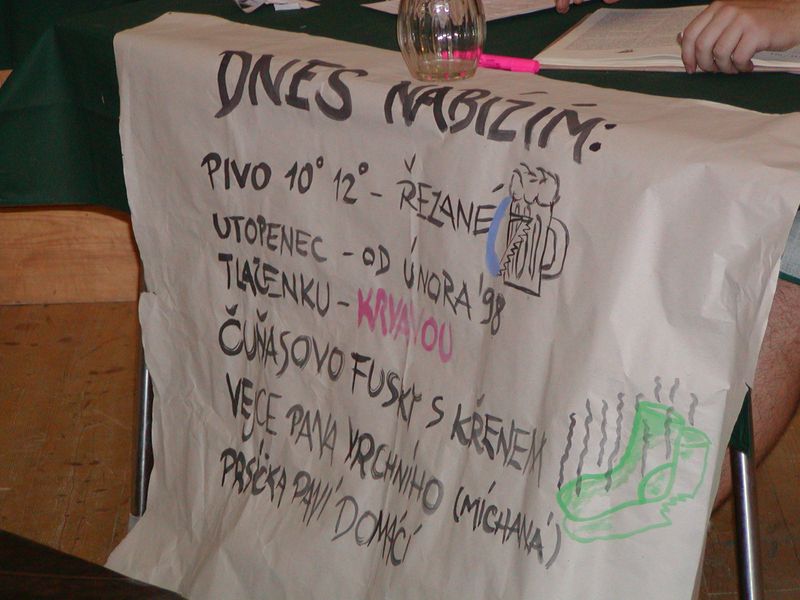 DNES NABÍZÍM:
PIVO 10° 12° - ŘEZANÉ
UTOPENEC - OD ÚNORA '98
TLAČENKU - KRVAVOU
ČUŇASOVO FUSKY S KŘENEM
VEJCE PANA VRCHNÍHO (MÍCHANÁ)
PRSÍČKA PANÍ DOMÁCÍ